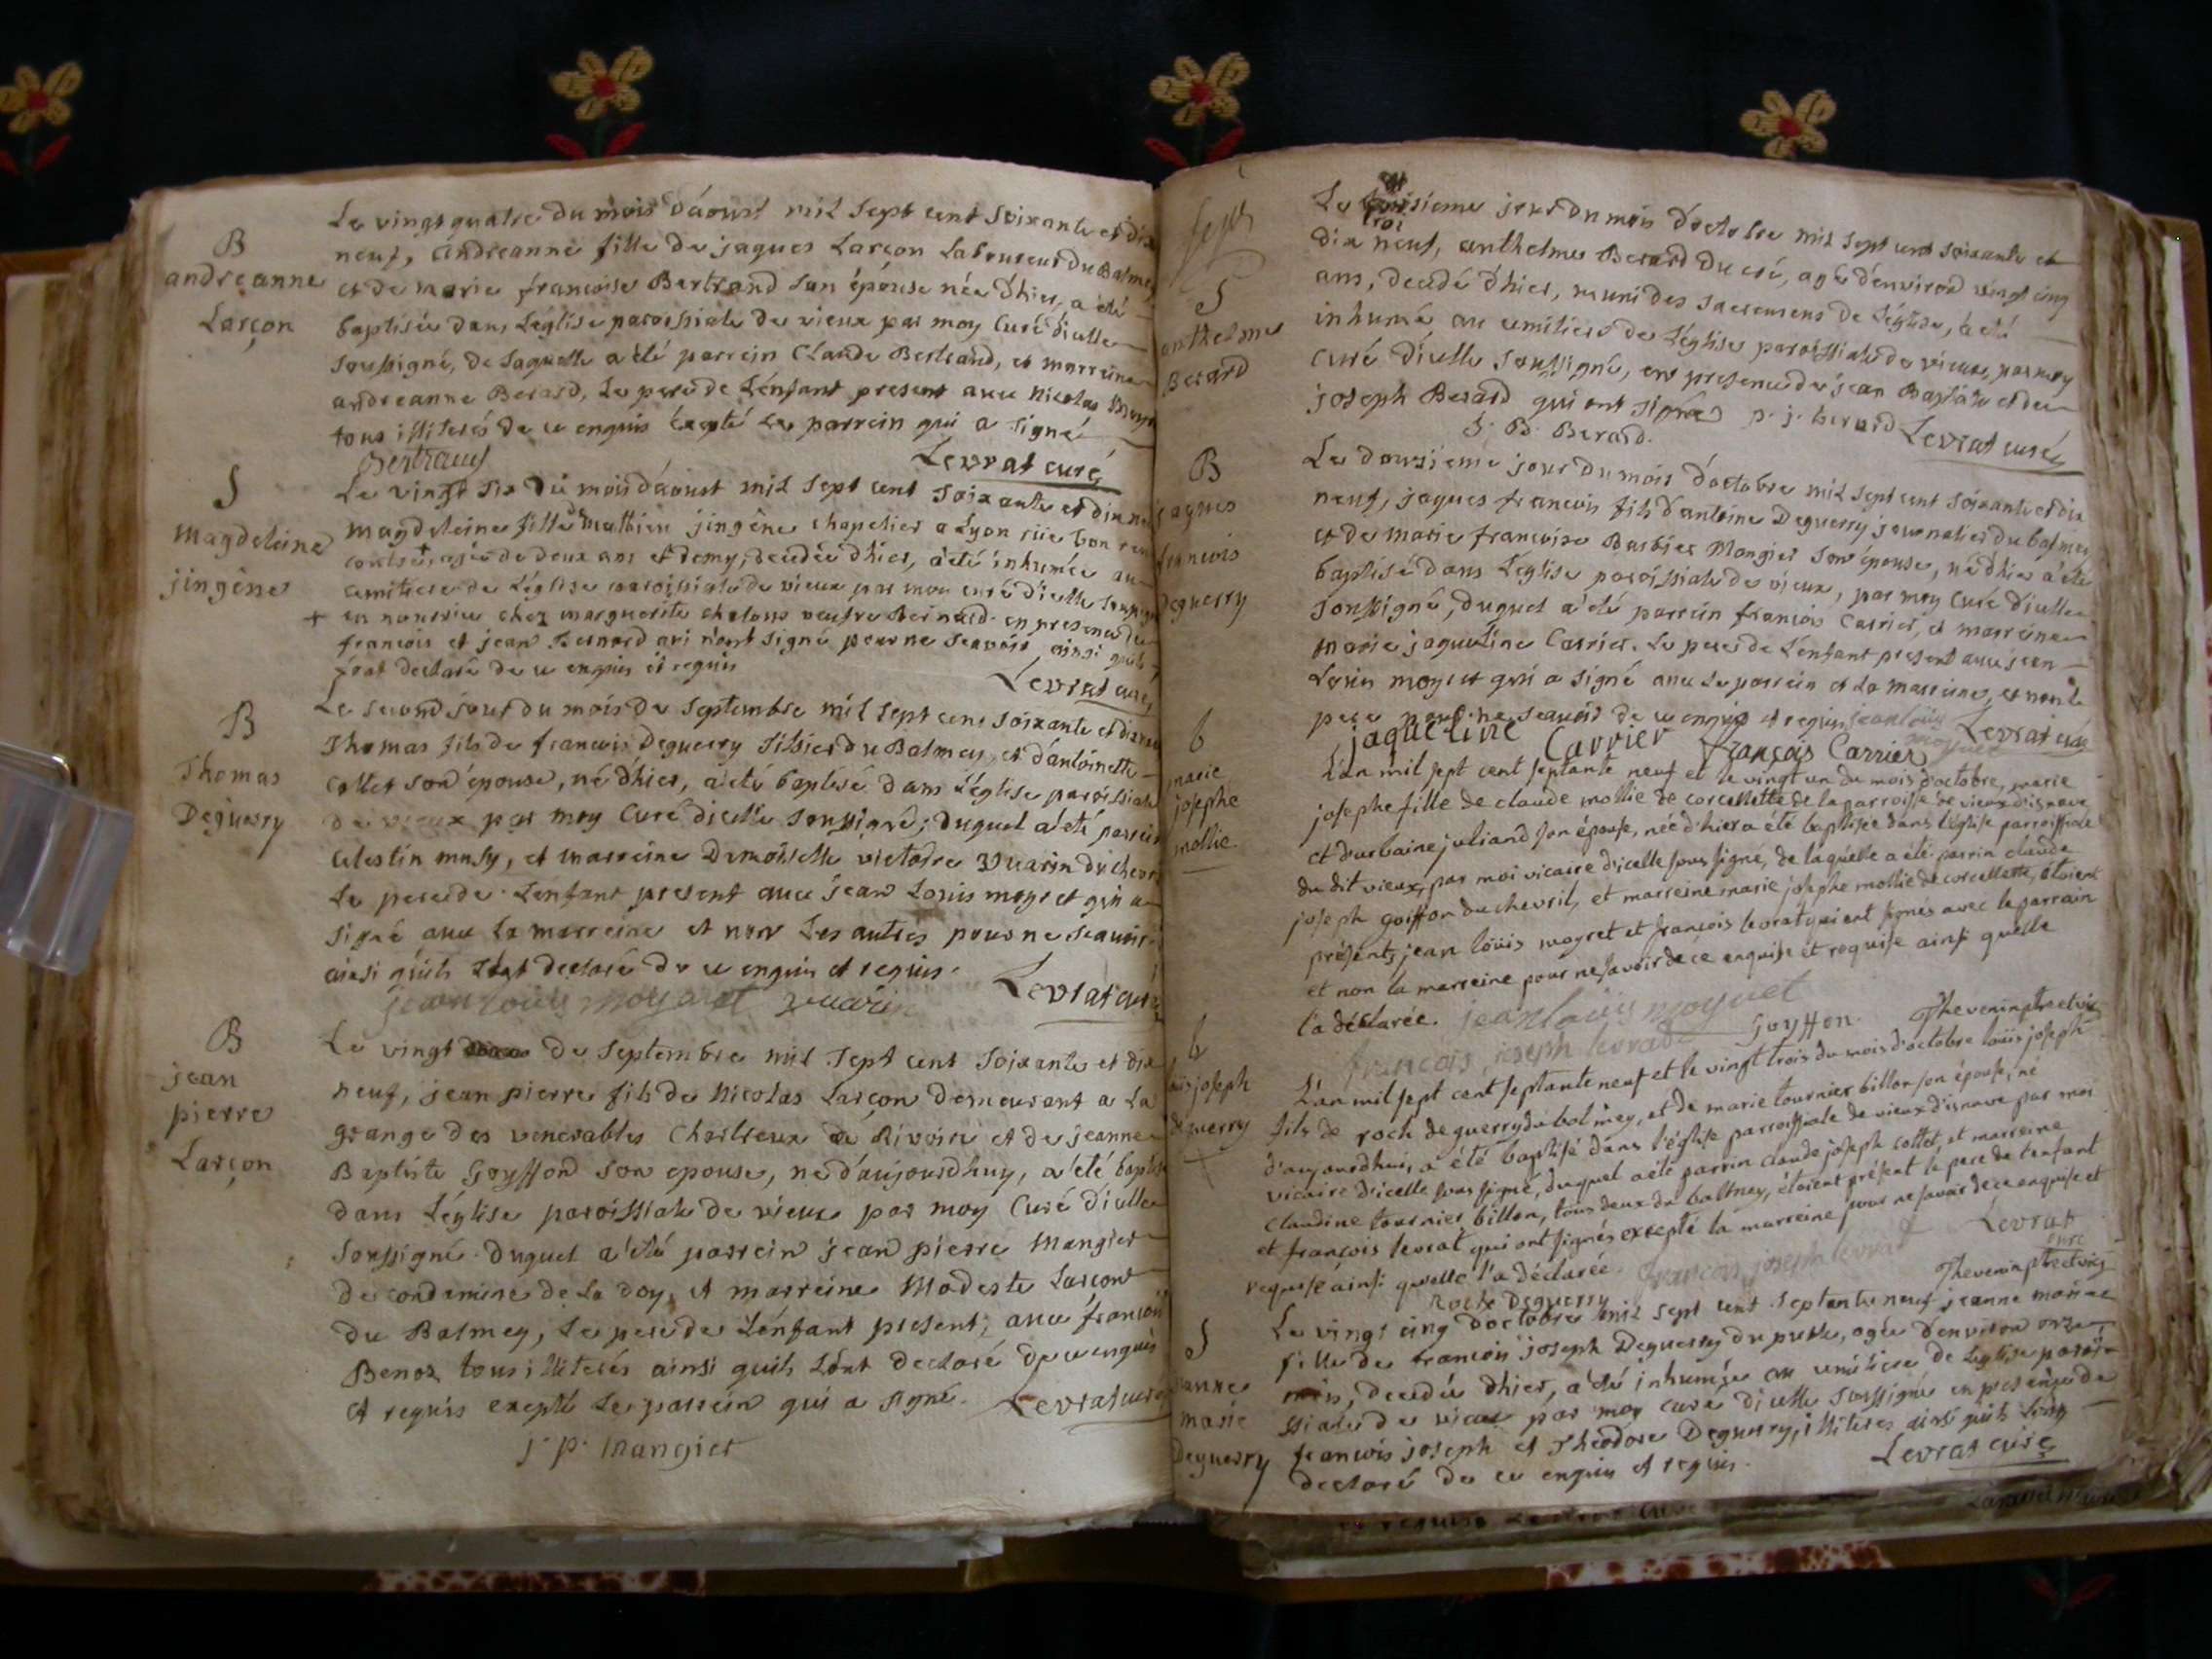 B
andreanne
Larçon
Le vingt quatre du mois d'aoust mil sept cent soixante et dix
neuf, andreanne fille de jaques Larçon Laboureur du Balmey
et de marie francoise Bertrand son épouse née d'hier, a été
baptisée dans L'église paroissiale de vieux par moy Curé d'icelle
soussigné, de Laquelle a été parrein Claude Bertrand, et marreine
andreanne Berard, Le pere de L'enfant present avec Nicolas
tous illiterés de ce enquis éxcepté Le parrein qui a signé
Bertrand Levrat curé
S
Magdeleine
jingêne
Le vingt six du mois d'aoust mil sept cent soixante et dix
magdeleine fille de mathieu jingêne chapelier a Lyon rüe bon
agée de deux ans et demy, decedée d'hier, a été inhumée au
cemitiere de L'église paroissiale de vieux par moy curé d'icelle soussigné
+ en nourrice chez marguerite chalons veufve Bernard. en presence de
francois et jean Bernard qui n'ont signé pour ne scavoir ainsi quils
sont declaré de ce enquis et requis
Levrat curé
B
Thomas
Deguerry
Le second jour du mois de septembre mil sept cent soixante et dix neuf
Thomas fils de francois Deguerry du Balmey, et d'antoinette
Collet son épouse, né d'hier, a été baptisé dans L'église paroissiale
de vieux par moy Curé d'icelle soussigné; duquel a été parrein
Celestin musy, et marreine Demoiselle victoire Vuarin du chevril
Le pere de L'enfant present avec jean Louis moyret qui a
signé avec La marreine et non Les autres pour ne scavoir
ainsi quils L'ont declaré de ce enquis et requis.
jean louis moyaret vuarin Levrat curé
B
jean
pierre
Larçon
Le vingt de septembre mil sept cent soixante et dix
neuf, jean pierre fils de Nicolas Larçon demeurant a La
grange des venerables Chartreux de Rivoire et de jeanne
Baptiste Goyffon son epouse, né d'aujourdhuy, a été baptisé
dans L'église paroissiale de vieux par moy Curé d'icelle
soussigné. duquel a été parrein jean pierre Mangier
de condamine de La doy, et marreine Modeste Larçont
du Balmey, Le pere de L'enfant present, avec francois
Benoz tous illiterés ainsi quils L'ont declaré de ce enquis
et requis excepté Le parrein qui a signé. Levrat curé
j. p. Mangier
sept
S
anthelme
Berard
Le troisieme jour du mois d'octobre mil sept cent soixante et
troi
dix neuf, anthelme Berard du cré, agé d'environ vingt cinq
ans, decedé d'hier, muni des sacremens de L'église, a été
inhumé au cemitiere de L'église paroissiale de vieux, par moy
curé d'icelle soussigné, en presence de jean Baptiste et de
joseph Berard qui ont signés p. j. berard Levrat curé
J. B. Berard.
B
jaques
francois
Deguerry
Le douzieme jour du mois d'octobre mil sept cent soixante et dix
neuf, jaques francois fils d'antoine Deguerry journalier du balmey
et de marie francoise Barbier Mangier son épouse, né d'hier a été
baptisé dans L'église paroissiale de vieux, par moy Curé d'icelle
soussigné, duquel a été parrein francois Carrier, et marreine
marie jaqueline Carrier. Le pere de L'enfant present avec jean
Louis moyret qui a signé avec Le parrein et La marreine, et non le
pere pour ne scavoir de ce enquis et requis jean louis Levrat curé
jaqueline Carrier François Carrier moyret
b
marie
josephe
mollie.
L'an mil sept cent septante neuf et le vingt un du mois d'octobre, marie
josephe fille de claude mollie de corcellette de la parroisse de vieux d'isnave
et d'urbaine juliand son épouse, née d'hier a été baptisée dans l'église parroissiale
du dit vieux, par moi vicaire d'icelle sous signé, de laquelle a été parrin claude
joseph goiffon du chevril, et marreine marie josephe mollie de corcellette, étoient
présents jean loüis moyret et françois levrat qui ont signés avec le parrain
et non la marreine pour ne savoir de ce enquise et requise ainsi qu'elle
l'a déclarée. jean louis moyret
françois joseph levrat Goyffon. Thevenin ptre et vic
b
loüis joseph
deguerry
L'an mil sept cent septante neuf et le vingt trois du mois d'octobre loüis joseph
fils de roch deguerry du bolmey, et de marie tournier billon son épouse, né
d'aujourdhui, a été baptisé dans l'église parroissiale de vieux d'isnave par moi
vicaire d'icelle sous signé, duquel a été parrin claude joseph collet, et marreine
claudine tournier billon, tous deux du baltney, étoient présent le pere de l'enfant
et françois levrat qui ont signés excepté la marreine pour ne savoir de ce enquise et
requise ainsi qu'elle l'a déclarée. françois joseph levrat Levrat
curé
Roch Deguerry Thevenin ptre et vic
S
jeanne
marie
Deguerry
Le vingt cinq d'octobre mil sept cent septante neuf jeanne marie
fille de francois joseph Deguerry, agée d'environ onze
mois, decedée d'hier, a été inhumée au cemitiere de L'église parois-
ssiale de vieux par moy curé d'icelle soussigné en presence de
francois joseph et Theodore Deguerry, illiteres ainsi quils L'ont
declaré de ce enquis et requis. Levrat curé